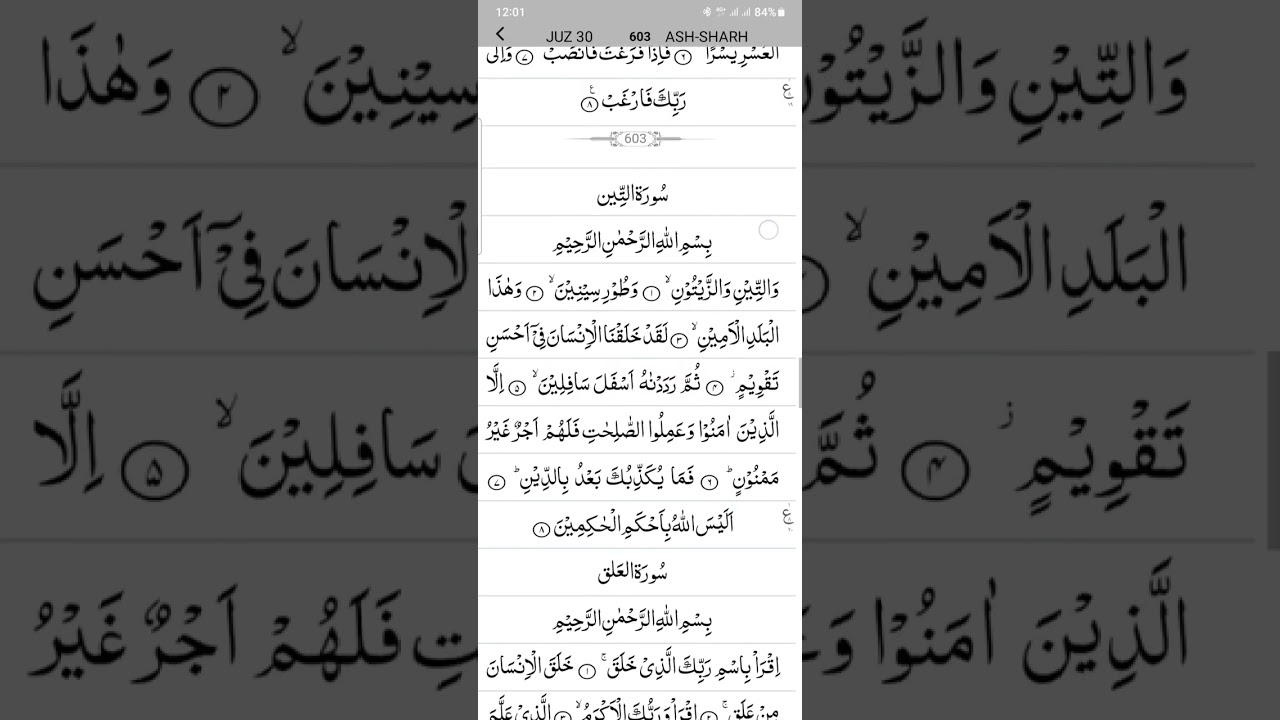 12:01 84%
JUZ 30 603 ASH-SHARH
الۡعُسۡرِ يُسۡرًا ۶ فَاِذَا فَرَغۡتَ فَانۡصَبۡ ۷ وَاِلٰى
رَبِّكَ فَارۡغَبۡ ۸
603
سُورَة التِّين
بِسۡمِ اللهِ الرَّحۡمٰنِ الرَّحِيۡمِ
وَالتِّيۡنِ وَالزَّيۡتُوۡنِۙ ۱ وَطُوۡرِ سِيۡنِيۡنَۙ ۲ وَهٰذَا
الۡبَلَدِ الۡاَمِيۡنِۙ ۳ لَقَدۡ خَلَقۡنَا الۡاِنۡسَانَ فِىۡۤ اَحۡسَنِ
تَقۡوِيۡمٍ ۴ ثُمَّ رَدَدۡنٰهُ اَسۡفَلَ سَافِلِيۡنَۙ ۵ اِلَّا
الَّذِيۡنَ اٰمَنُوۡا وَعَمِلُوا الصّٰلِحٰتِ فَلَهُمۡ اَجۡرٌ غَيۡرُ
مَمۡنُوۡنٍؕ ۶ فَمَا يُكَذِّبُكَ بَعۡدُ بِالدِّيۡنِؕ ۷
اَلَيۡسَ اللهُ بِاَحۡكَمِ الۡحٰكِمِيۡنَ ۸
سُورَة العَلق
بِسۡمِ اللهِ الرَّحۡمٰنِ الرَّحِيۡمِ
اِقۡرَاۡ بِاسۡمِ رَبِّكَ الَّذِىۡ خَلَقَۚ ۱ خَلَقَ الۡاِنۡسَانَ
مِنۡ عَلَقٍۚ ۲ اِقۡرَاۡ وَرَبُّكَ الۡاَكۡرَمُۙ ۳ الَّذِىۡ عَلَّمَ